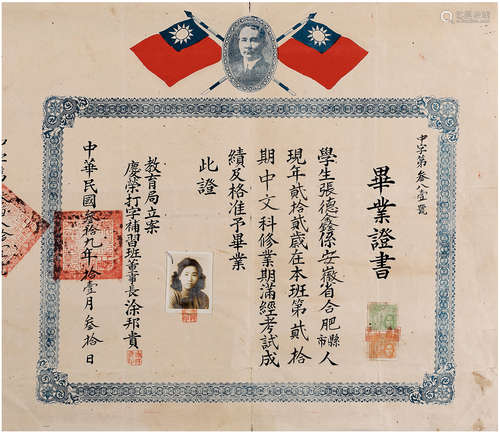 畢業證書
中字第叁八壹號
學生張德鑫係安徽省合肥縣市人
現年貳拾貳歲在本班第貳拾
期中文科修業期滿經考試成
績及格准予畢業
此證
教育局立案
慶榮打字補習班董事長涂邦貴
中華民國叁拾九年拾壹月叁拾日